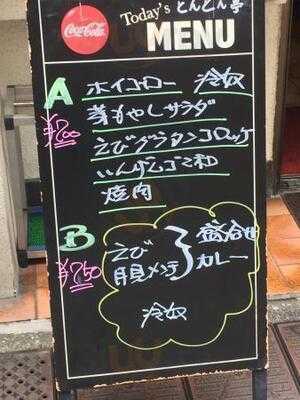 Coca-Cola
Today's とんとん亭
MENU
A ホイコーロー 冷奴
¥700 芽もやしサラダ
えびグラタンコロッケ
いんげんゴマ和
焼肉
B えび
¥750 豚メンチ カレー
冷奴